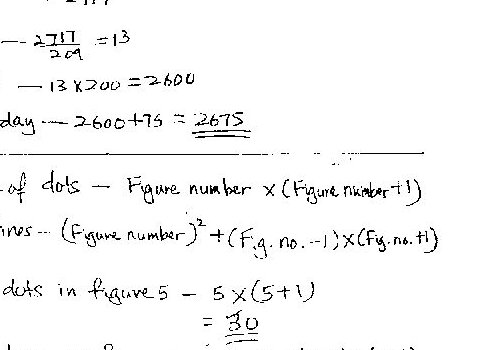 — 2717/209 = 13
— 13 x 200 = 2600
day — 2600+75 = 2675
of dots — Figure number x (Figure number+1)
ines -- (Figure number)² + (Fig. no. -1) x (Fig. no. +1)
dots in figure 5 — 5 x (5+1)
= 30